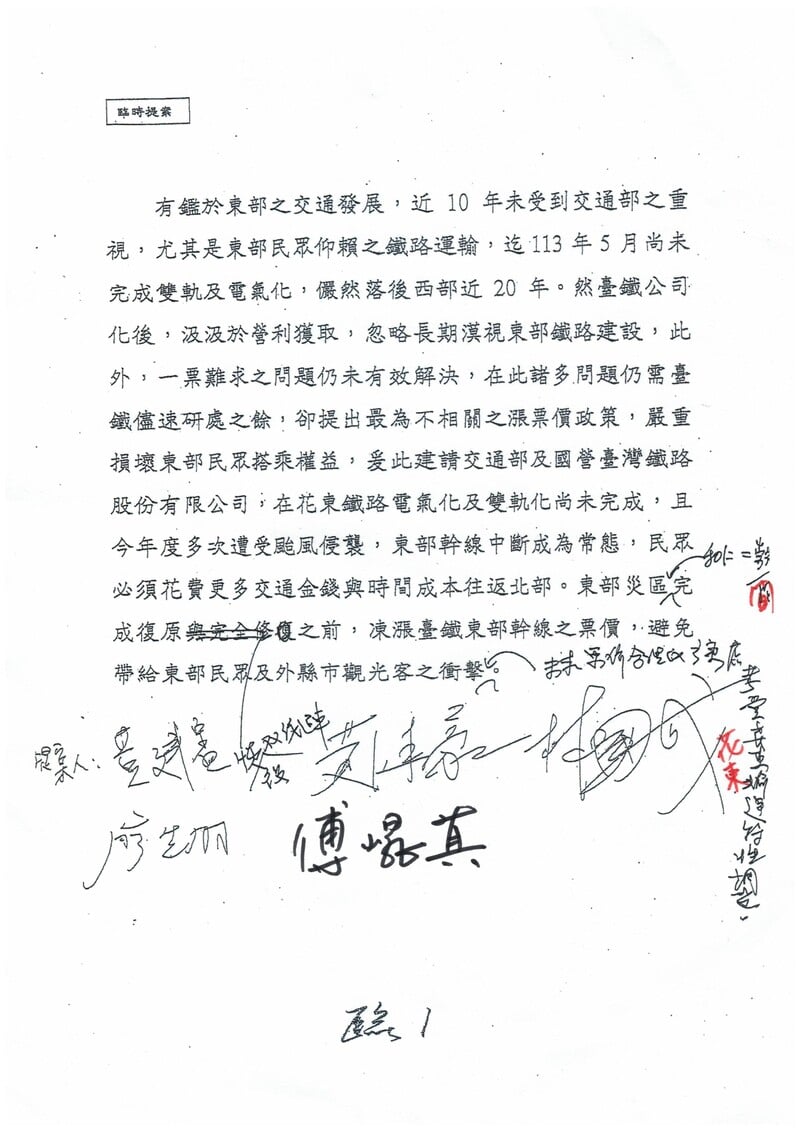 臨時提案
有鑑於東部之交通發展，近 10 年未受到交通部之重
視，尤其是東部民眾仰賴之鐵路運輸，迄 113 年 5 月尚未
完成雙軌及電氣化，儼然落後西部近 20 年。然臺鐵公司
化後，汲汲於營利獲取，忽略長期漠視東部鐵路建設，此
外，一票難求之問題仍未有效解決，在此諸多問題仍需臺
鐵儘速研處之餘，卻提出最為不相關之漲票價政策，嚴重
損壞東部民眾搭乘權益，爰此建請交通部及國營臺灣鐵路
股份有限公司，在花東鐵路電氣化及雙軌化尚未完成，且
今年度多次遭受颱風侵襲，東部幹線中斷成為常態，民眾
和仁二號
必須花費更多交通金錢與時間成本往返北部。東部災區完
成復原與完全修復之前，凍漲臺鐵東部幹線之票價，避免
帶給東部民眾及外縣市觀光客之衝擊。
未來票價合理
應
考量
花東
性調整。
提案人：
黃
廖先翔
傅崐萁
臨 1